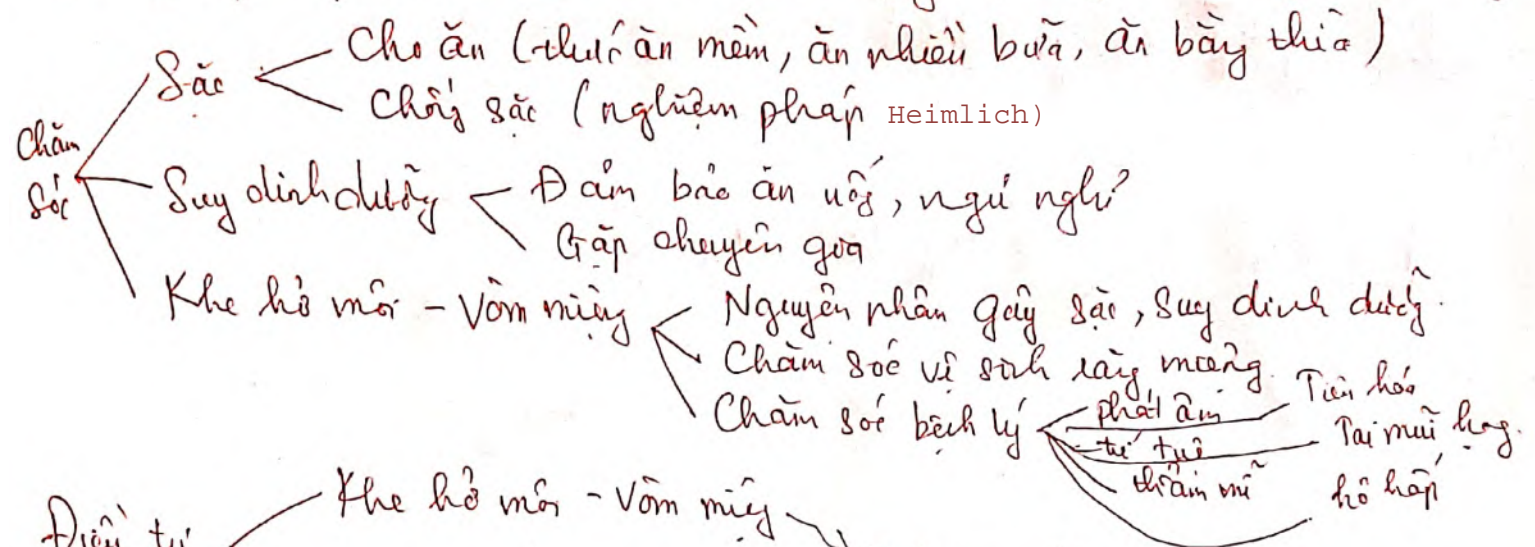 Sặc
Cho ăn (thức ăn mềm, ăn nhiều bữa, ăn bằng thìa)
Chống sặc (nghiệm pháp Heimlich)
Chăm
Sóc
Suy dinh dưỡng
Đảm bảo ăn uống, ngủ nghỉ
Gặp chuyên gia
Khe hở môi - Vòm miệng
Nguyên nhân gây sặc, Suy dinh dưỡng.
Chăm sóc vệ sinh răng miệng.
Chăm sóc bệnh lý
phát âm
trí tuệ
thẩm mĩ
Tiêu hóa
Tai mũi họng.
hô hấp
Khe hở môi - Vòm miệng
Điều trị